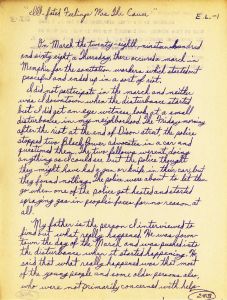 "Ill-fated Feelings Was the Cause"
E.L.-1
On March the twenty-eighth, nineteen hundred
and sixty eight, a Thursday, there occurred a march in
Memphis for the sanitation workers which started
peaceful and ended up in a sort of riot.
I did not participate in the march and neither
was I downtown when the disturbance started
but I did get an eye witness look at a small
disturbance in my neighborhood. The Friday morning
after the riot at the end of Dixon street the police
stopped two Black Power advocates in a car and
questioned them. The two fellows weren't doing
anything as I could see but the police thought
they might have had a gun or knife in their car but
they found nothing. The police were about to let them
go when one of the police got heated and started
spraying gas in people's faces for no reason at
all.
My father is the person I interviewed to
find out what really happened. He was down
town the day of the March and was pushed into
the disturbance when it started happening. He
said that what really happened was that most
of the young people and some older persons also
who were not primarily concerned with help-